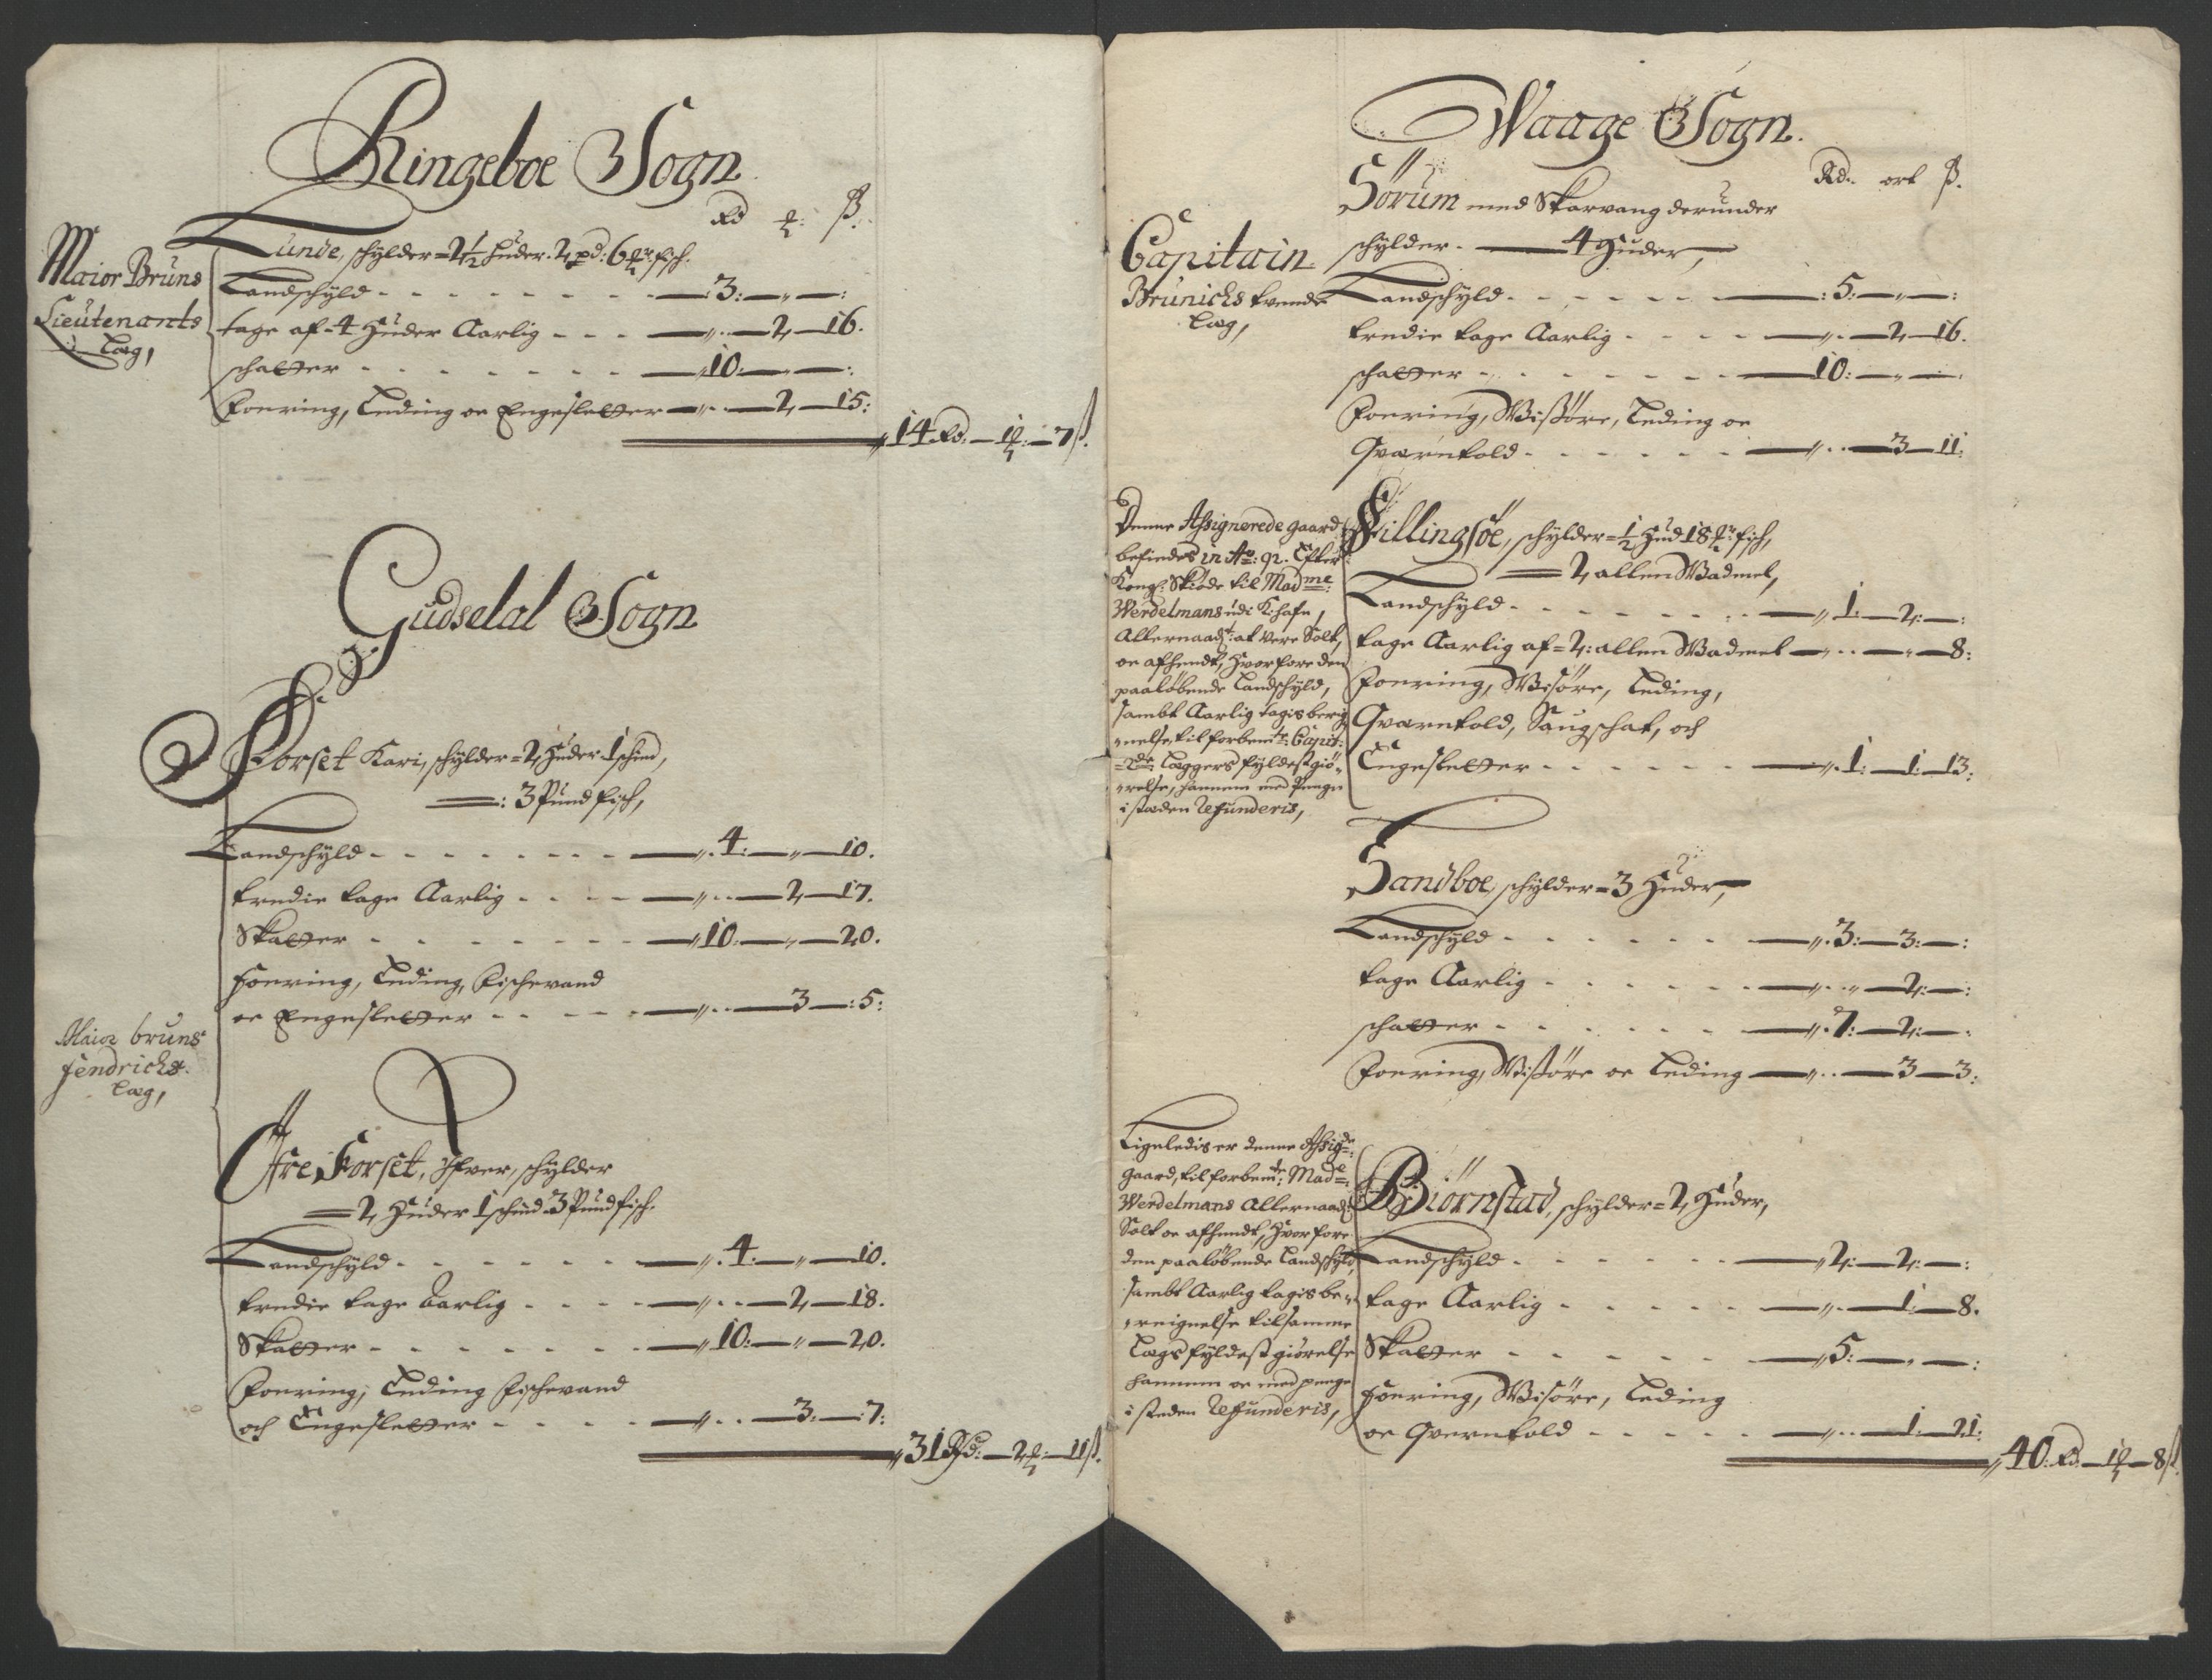 Ringeboe Sogn
Rd ꝛ: ß.
Maior Bruns
Lieutenants
Læg,
Lunde, schylder = 2½ Huder. 2 pd: 6 fisch.
Landschyld - - - 3: — " — :
tage af 4 Huder Aarlig - - - " — 2 — 16.
schatter - - - 10: — " — :
Foering, Leding oc Engesletter — " — 2 — 15:
14 Rd: — 1 — 7 ß.
Gudsdal Sogn
Forset Kari, schylder = 2 Huder 1 schind,
3 Pund fisch,
Landschyld - - - 4: — " — 10.
tredie tage Aarlig - - - " — 2 — 17.
Skatter - - - 10: — " — 20.
Foering, Leding, Fischevand
oc Engesletter - - - " — 3 — : 5:
Maior bruns
fendrichs.
Læg,
Øfre Forset, Ifver, schylder
= 2 Huder 1 schind 3 Pund fisch.
Landschyld - - - 4: — " — 10.
tredie tage aarlig - - - " — 2 — 18.
Skatter - - - 10: — " — 20.
Foering, Leding Fischevand
och Engesletter - - - " — 3: — 7:
31 Rd: — 2 — 11 ß.
Waage Sogn.
Rd. ort ß.
Sörum med Skarvang derunder
schylder. — 4 Huder,
Capitain
Brünichs tvende
Læg,
Landschyld - - - : 5: — " — :
tredie tage Aarlig - - - " — 2 — 16.
schatter - - - 10: — " — :
Foering, Wißöre, Leding oc
Qvarntold - - - " — 3 — 11:
Denne Assignerede gaard
befindes in Ao: 92. Efter
Kongl: Skiøde til Madme:
Werdelmans udi K:hafn,
Allernaadt: at vere Solt,
oc afhendt, Hvorfore den
paaløbende Landschyld,
sambt Aarlig tagis bereg
nelse, til forbemte: Capit:
Læggers fyldestgiö-
relse, hannem med Penge
i stæden Refunderis,
Fillingsöe, schylder = ½ Hud 18 fisch,
= 2 allen Wadmel,
Landschyld - - - 1: — 2: — :
tage Aarlig af = 2: allen Wadmel — " — " — 8:
Foering, Wisöre, Leding,
Qvarntold, Saugschat, och
Engesletter - - - 1: — 1: — 13:
Sandboe, schylder = 3 Huder,
Landschyld - - - 3: — 3: — :
tage Aarlig - - - " — 2: — :
schatter - - - 7: — 2: — .
Foering, Wißöre oc Leding — " — 3 — 3:
Ligeledis er denne Assigde:
gaard, til forbemte: Made:
Werdelmans Allernaadt:
Solt oc afhendt, Hvorfore
den paaløbende Landschyld,
sambt Aarlig tagis be-
reignelse til samme
Lægs fyldestgiörelse
hannem oc med penge
i steden Refunderis,
Biörnstad, schylder = 2 Huder,
Landschyld - - - 2: — 2: — :
tage Aarlig - - - " — 1 — 8.
Skatter - - - 5: — " — :
Foering, Wisöre, Leding
oc Qverntold - - - " — 1: — 21:
40: Rd. — 1 — 8 ß.